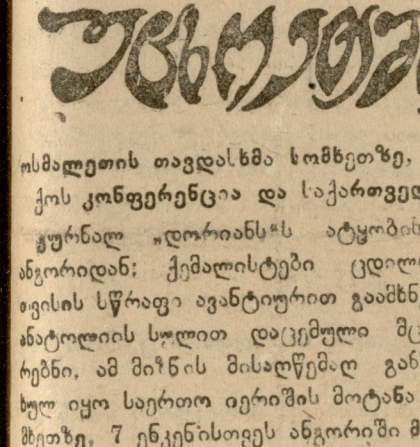 უცხოეთშ
ოსმალეთის თავდასხმა სომხეთზე,
ქოს კონფერენცია და საქართველ
ჟურნალ „დორიანს“ს ატყობინ
ანგორიდან; ქემალისტები ცდილ
თვისის სწრაფი ავანტიურით გაამხნ
ანატოლიის სულით დაცემული მც
რებნი, ამ მიზნის მისაღწევად გან
ხულ იყო საერთო იერიშის მოტანა
მხეთზე, 7 ენკენისთვეს ანგორიში მ